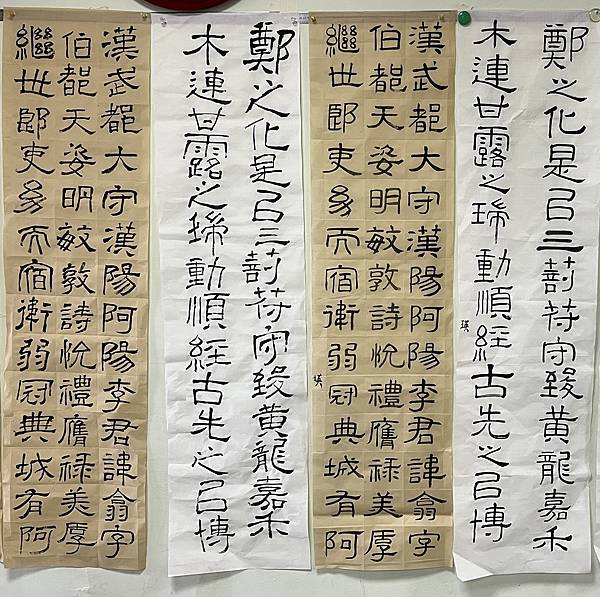 鄭之化是以三剖符守致黃龍嘉禾
木連甘露之瑞動順經古先之以博
瑛
漢武都大守漢陽阿陽李君諱翕字
伯都天姿明敏敦詩悅禮膺祿美厚
繼世郎吏幼而宿衛弱冠典城有阿
鄭之化是以三剖符守致黃龍嘉禾
木連甘露之瑞動順經古先之以博
漢武都大守漢陽阿陽李君諱翕字
伯都天姿明敏敦詩悅禮膺祿美厚
繼世郎吏幼而宿衛弱冠典城有阿